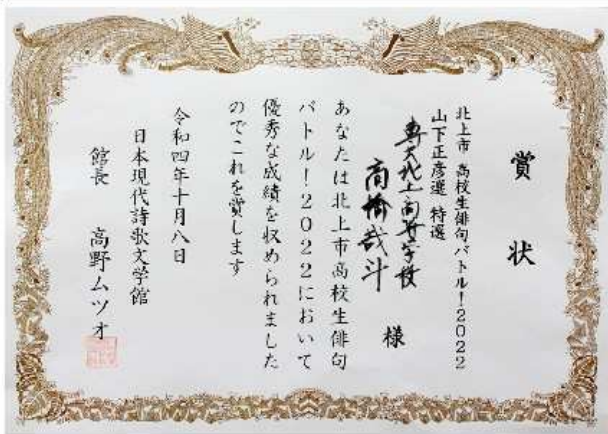 賞状
北上市 高校生俳句バトル!2022
山下正彦選 特選
専大北上高等学校
高橋哉斗 様
あなたは北上市高校生俳句
バトル!2022において
優秀な成績を収められました
のでこれを賞します
令和四年十月八日
日本現代詩歌文学館
館長 高野ムツオ